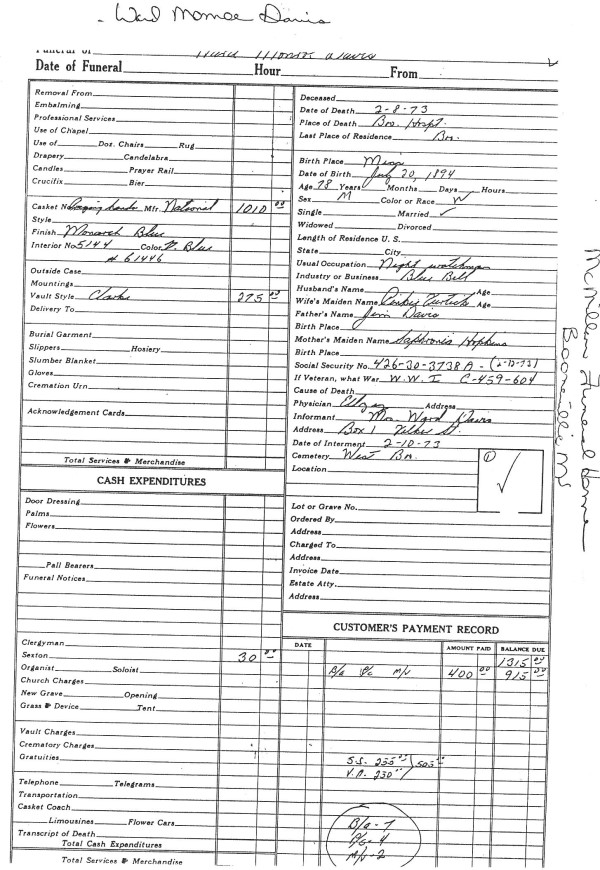 - Ward Monroe Davis
Funeral of Ward Monroe Davis
Date of Funeral Hour From
Removal From
Embalming
Professional Services
Use of Chapel
Use of Doz. Chairs Rug
Drapery Candelabra
Candles Prayer Rail
Crucifix Bier
Casket No. Mfr. National 1010 00
Style
Finish Monarch Blue
Interior No. 5144 Color Blue
# 61446
Outside Case
Mountings
Vault Style Clarke 275 00
Delivery To
Burial Garment
Slippers Hosiery
Slumber Blanket
Gloves
Cremation Urn
Acknowledgement Cards
Total Services & Merchandise
CASH EXPENDITURES
Door Dressing
Palms
Flowers
Pall Bearers
Funeral Notices
Clergyman
Sexton 30 00
Organist Soloist
Church Charges
New Grave Opening
Grass & Device Tent
Vault Charges
Crematory Charges
Gratuities
Telephone Telegrams
Transportation
Casket Coach
Limousines Flower Cars
Transcript of Death
Total Cash Expenditures
Total Services & Merchandise
Deceased
Date of Death 2-8-73
Place of Death Boo. Hospt.
Last Place of Residence Bo.
Birth Place Miss
Date of Birth July 20, 1894
Age 78 Years Months Days Hours
Sex M Color or Race W
Single Married ✓
Widowed Divorced
Length of Residence U. S.
State City
Usual Occupation Night watchman
Industry or Business Blue Bell
Husband's Name Age
Wife's Maiden Name Age
Father's Name Jim Davis
Birth Place
Mother's Maiden Name Saphronia Hopkins
Birth Place
Social Security No. 426-30-3738 A - (2-12-73)
If Veteran, what War W.W. I C-459-604
Cause of Death
Physician Address
Informant Mrs Ward Davis
Address Box 1 St.
Date of Interment 2-10-73
Cemetery West Bo.
Location
① ✓
Lot or Grave No.
Ordered By
Address
Charged To
Address
Invoice Date
Estate Atty.
Address
CUSTOMER'S PAYMENT RECORD
DATE AMOUNT PAID BALANCE DUE
1315 00
B/a P/c M/v 400 00 915 00
S.S. - 255 00 505 00
V.A. 250 00
B/a - 7
P/c - 4
M/v - 2
McMillan Funeral Home
Booneville MS